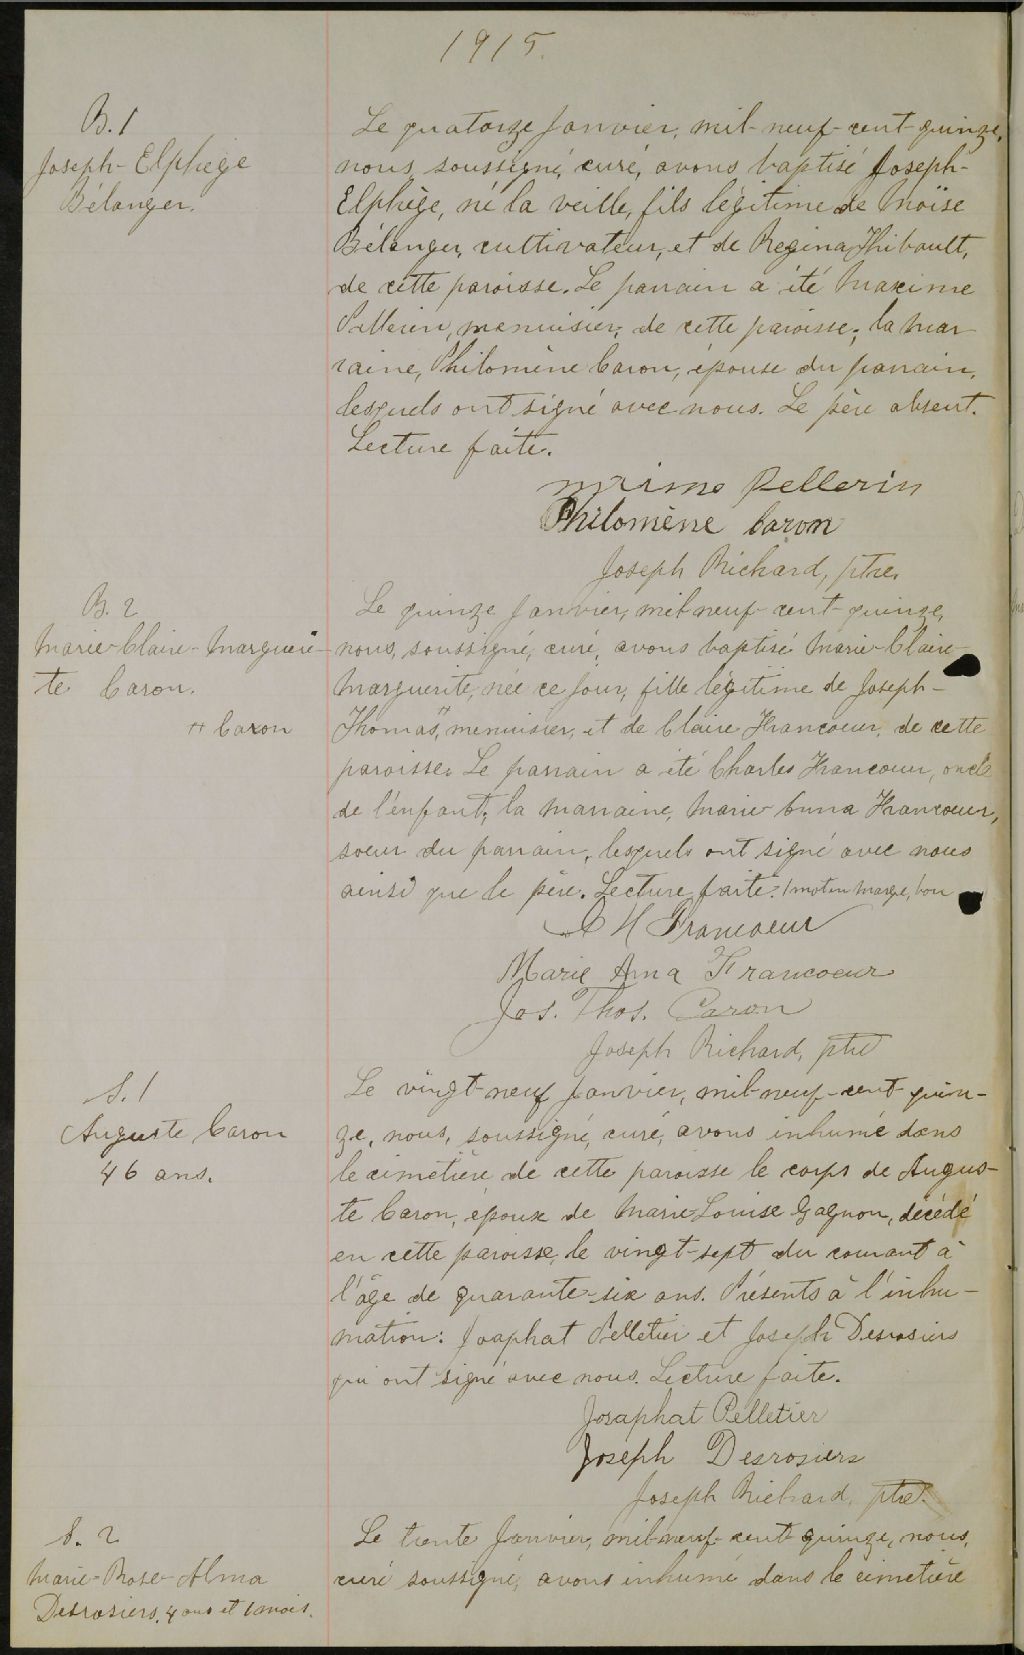 1915.
B.1
Joseph-Elphège
Bélanger.
Le quatorze Janvier, mil-neuf-cent-quinze,
nous, soussigné, curé, avons baptisé Joseph-
Elphège, né la veille, fils légitime de Moïse
Bélanger, cultivateur, et de Regina Thibault,
de cette paroisse. Le parrain a été Maxime
Pellerin, menuisier, de cette paroisse; la mar-
raine, Philomène Caron, épouse du parrain,
lesquels ont signé avec nous. Le père absent.
Lecture faite.
Pellerin
Philomène Caron
Joseph Richard, ptre.
B. 2
Marie-Claire-Margueri-
te Caron.
++ Caron
Le quinze Janvier, mil neuf-cent-quinze,
nous, soussigné, curé, avons baptisé Marie-Claire-
Marguerite, née ce jour, fille légitime de Joseph-
Thomas ++, menuisier, et de Claire Francoeur, de cette
paroisse. Le parrain a été Charles Francoeur, oncle
de l'enfant; la marraine, Marie-Anna Francoeur,
soeur du parrain, lesquels ont signé avec nous
ainsi que le père. Lecture faite. 1 mot en marge, bon
Francoeur
Marie Anna Francoeur
Jos. Thos. Caron
Joseph Richard, ptre
S. 1
Auguste Caron
46 ans.
Le vingt-neuf Janvier, mil-neuf-cent-quin-
ze, nous, soussigné, curé, avons inhumé dans
le cimetière de cette paroisse le corps de Augus-
te Caron, époux de Marie-Louise Gagnon, décédé
en cette paroisse, le vingt-sept du courant à
l'âge de quarante-six ans. Présents à l'inhu-
mation: Josaphat Pelletier et Joseph Desrosiers
qui ont signé avec nous. Lecture faite.
Josaphat Pelletier
Joseph Desrosiers
Joseph Richard, ptre.
S. 2
Marie-Rose-Alma
Desrosiers, 4 ans et 1 mois.
Le trente Janvier, mil-neuf-cent-quinze, nous,
curé soussigné, avons inhumé dans le cimetière